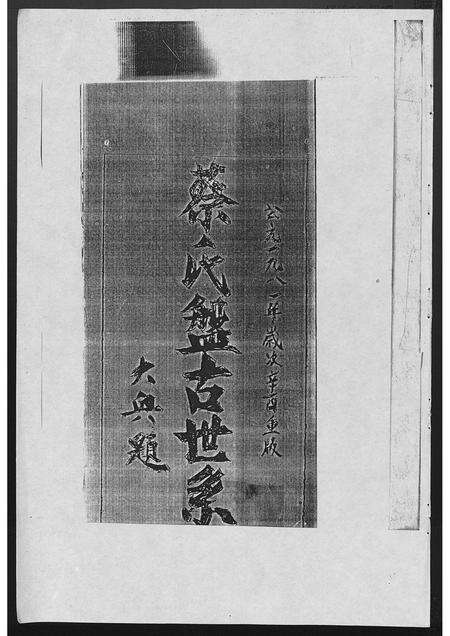 公元一九八一年歲次辛酉重版
蔡氏盤古世系
大興題